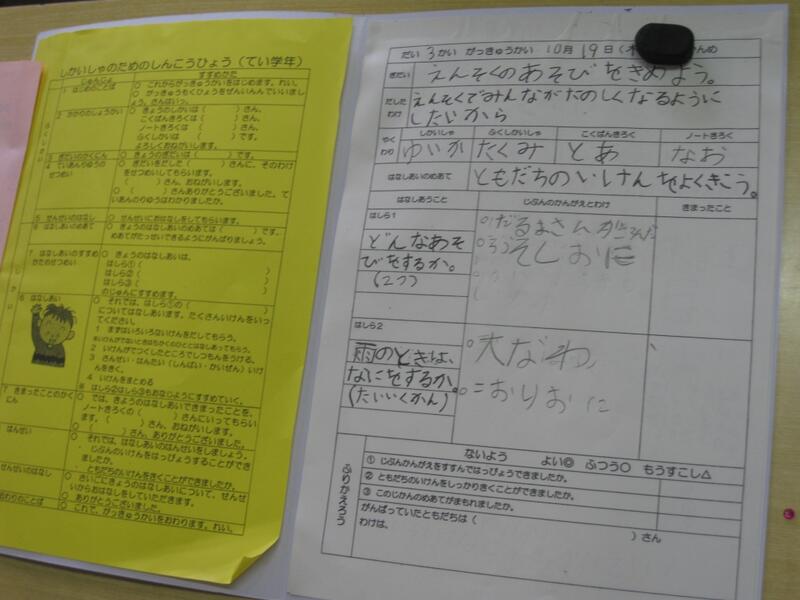 しかいしゃのためのしんこうひょう（てい学年）
じゅんじょ すすめかた
1 はじめのことば
○ これからがっきゅうかいをはじめます。れい。
○ がっきゅうもくひょうをぜんいんでいいましょう。さんはいっ。
2 かかりのしょうかい
○ きょうのしかいは（ ）さん、
こくばんきろくは（ ）さん、
ノートきろくは（ ）さん、
ふくしかいは（ ）です。
よろしくおねがいします。
3 ぎだいのかくにん
○ きょうのぎだいは（ ）です。
4 ていあんりゆうのせつめい
○ ぎだいをだした（ ）さんに、そのわけをせつめいしてもらいます。
（ ）さん、おねがいします。
○ （ ）さんありがとうございました。ていあんのりゆうはわかりましたか。
5 せんせいのはなし
○ せんせいにおはなしをしてもらいます。
6 はなしあいのめあて
○ きょうのはなしあいのめあては（ ）です。
めあてがたっせいできるようにがんばりましょう。
7 はなしあいのすすめかたのせつめい
○ きょうのはなしあいは、
はしら①（ ）
はしら②（ ）
はしら③（ ）
のじゅんにすすめます。
はなしあい
○ それでは、はしら①の（ ）についてはなしあいます。たくさんいけんをいってください。
1 まずはいろいろないけんをだしてもらう。
2 いけんがでつくしたところでしつもんをうける。
3 さんせい・はんたい（しんぱい・かいぜん）いけんをきく。
4 いけんをまとめる
※ はしら②はしら③もおなじようにすすめていく。
7 きまったことのかくにん
○ では、きょうのはなしあいできまったことを、ノートきろくの（ ）さんにいってもらいます。（ ）さん、おねがいします。
○ （ ）さん、ありがとうございました。
はんせい
○ それでは、はなしあいのはんせいをしましょう。
・ じぶんのいけんをはっぴょうすることができましたか。
・ ともだちのいけんをきくことができましたか。
せんせいのはなし
○ さいごにきょうのはなしあいについて、せんせいからおはなしをしていただきます。
○ ありがとうございました。
おわりのことば
○ これで、がっきゅうかいをおわります。れい。
だい 3かい がっきゅうかい 10月 19日（木
ぎだい えんそくのあそびをきめよう。
だしたわけ えんそくでみんながたのしくなるように
したいから
やくわり しかいしゃ ふくしかいしゃ こくばんきろく ノートきろく
ゆいか たくみ とあ なお
はなしあいのめあて ともだちのいけんをよくきこう。
はなしあうこと じぶんのかんがえとわけ きまったこと
はしら1
どんなあそ
びをするか。
(2つ)
○だるまさんがころんだ
そしおに
はしら2
雨のときは、
なにをするか。
(たいいくかん)
○大なわ
○こおりおに
ふりかえろう
ないよう よい◎ ふつう○ もうすこし△
① じぶんかんがえをすすんではっぴょうできましたか。
② ともだちのいけんをしっかりきくことができましたか。
③ このじかんのめあてがまもれましたか。
がんばっていたともだちは（ ）さん
わけは、